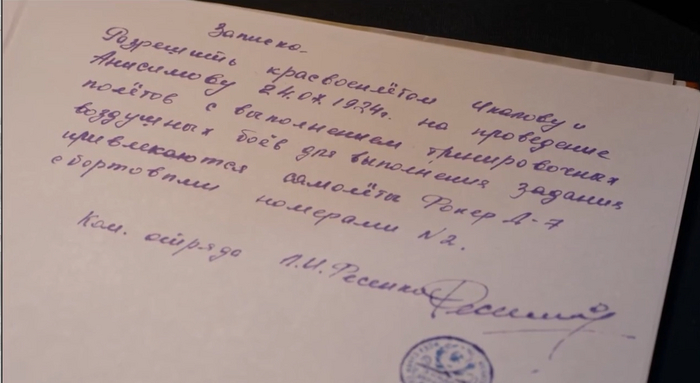 Записка.
Разрешить красвоенлётом Чкалову и
Анисимову 24.07.1924г. на проведение
полётов с выполнением тринировочных
воздушных боёв для выполнения задания
привлекаются самолёты Фокер Д-7
с бортовыми номерами N2.
Ком. отряда Л.И. Фесенко